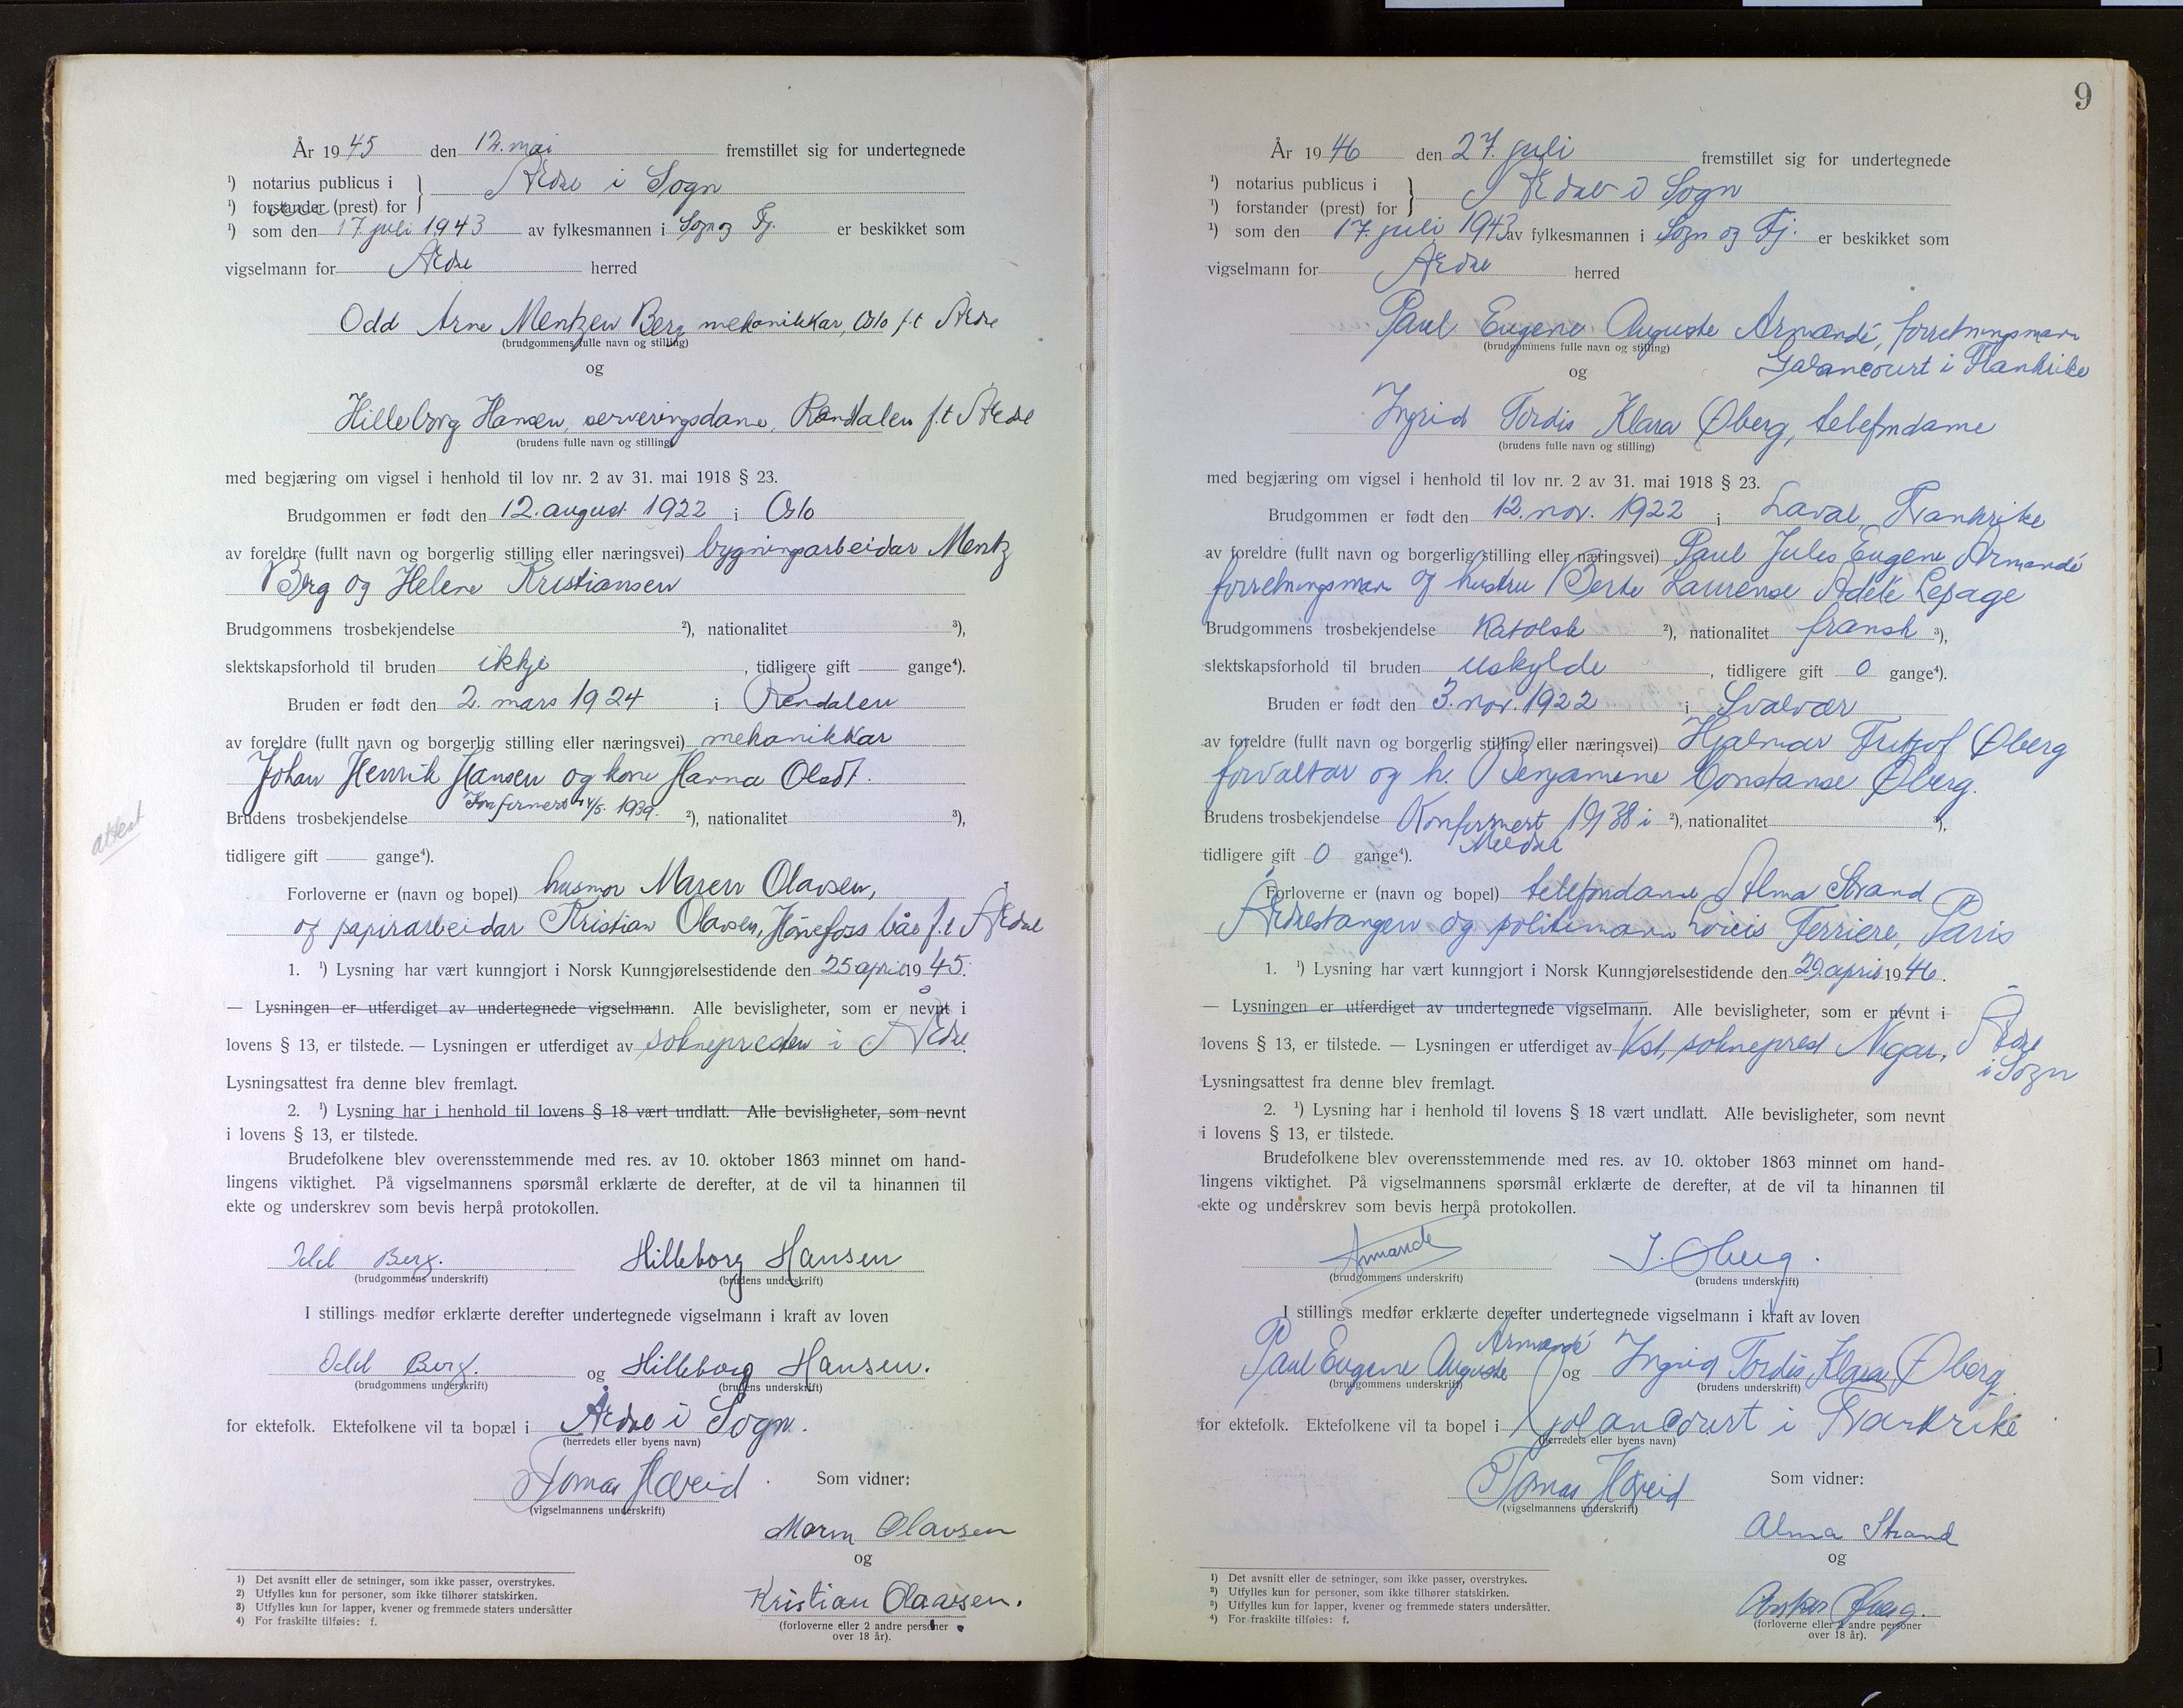 År 1945 den 12. mai fremstillet sig for undertegnede
¹) notarius publicus i
Årdal i Sogn
¹) forstander (prest) for
¹) som den 17 juli 1943 av fylkesmannen i Sogn og Fj. er beskikket som
vigselmann for Årdal herred
Odd Arne Mentzen Berg mekanikkar, Oslo f.t Årdal
(brudgommens fulle navn og stilling)
og
Hilleborg Hansen, serveringsdame, Rendalen f.t Årdal
(brudens fulle navn og stilling)
med begjæring om vigsel i henhold til lov nr. 2 av 31. mai 1918 § 23.
Brudgommen er født den 12. august 1922 i Oslo
av foreldre (fullt navn og borgerlig stilling eller næringsvei) bygningsarbeidar Mentz
Berg og Helene Kristiansen
Brudgommens trosbekjendelse ²), nationalitet ³),
slektskapsforhold til bruden ikkje, tidligere gift — gange⁴).
Bruden er født den 2. mars 1924 i Rendalen
av foreldre (fullt navn og borgerlig stilling eller næringsvei) mekanikkar
Johan Henrik Hansen og kone Hanna Olsdt.
Konfirmert 14/5. 1939.
Brudens trosbekjendelse ²), nationalitet ³),
attest
tidligere gift — gange⁴).
Forloverne er (navn og bopel) husmor Maren Olavsen,
og papirarbeidar Kristian Olavsen, Hønefoss båe f.t Årdal
1. ¹) Lysning har vært kunngjort i Norsk Kunngjørelsestidende den 25 april 1945.
— Lysningen er utferdiget av undertegnede vigselmann. Alle bevisligheter, som er nevnt i
lovens § 13, er tilstede. — Lysningen er utferdiget av soknepresten i Årdal.
Lysningsattest fra denne blev fremlagt.
2. ¹) Lysning har i henhold til lovens § 18 vært undlatt. Alle bevisligheter, som nevnt
i lovens § 13, er tilstede.
Brudefolkene blev overensstemmende med res. av 10. oktober 1863 minnet om hand-
lingens viktighet. På vigselmannens spørsmål erklærte de derefter, at de vil ta hinannen til
ekte og underskrev som bevis herpå protokollen.
Odd Berg. Hilleborg Hansen
(brudgommens underskrift) (brudens underskrift)
I stillings medfør erklærte derefter undertegnede vigselmann i kraft av loven
Odd Berg. og Hilleborg Hansen.
(brudgommens underskrift) (brudens underskrift)
for ektefolk. Ektefolkene vil ta bopæl i Årdal i Sogn.
(herredets eller byens navn)
Tomas Hæreid Som vidner:
(vigselmannens underskrift)
Maren Olavsen
og
Kristian Olavsen.
(forloverne eller 2 andre personer
over 18 år).
1) Det avsnitt eller de setninger, som ikke passer, overstrykes.
2) Utfylles kun for personer, som ikke tilhører statskirken.
3) Utfylles kun for lapper, kvener og fremmede staters undersåtter
4) For fraskilte tilføies: f.
9
År 1946 den 27. juli fremstillet sig for undertegnede
¹) notarius publicus i
Årdal i Sogn
¹) forstander (prest) for
¹) som den 17. juli 1943 av fylkesmannen i Sogn og Fj. er beskikket som
vigselmann for Årdal herred
Paul Eugene Auguste Armandé, forretningsmann
(brudgommens fulle navn og stilling)
Galancourt i Frankrike
og
Ingrid Tordis Klara Øberg, telefondame
(brudens fulle navn og stilling)
med begjæring om vigsel i henhold til lov nr. 2 av 31. mai 1918 § 23.
Brudgommen er født den 12. nov. 1922 i Laval, Frankrike
av foreldre (fullt navn og borgerlig stilling eller næringsvei) Paul Jules Eugene Armandé
forretningsmann og hustru Berte Laurense Adele Lepage
Brudgommens trosbekjendelse Katolsk ²), nationalitet fransk ³),
slektskapsforhold til bruden uskylde, tidligere gift 0 gange⁴).
Bruden er født den 3. nov. 1922 i Svolvær
av foreldre (fullt navn og borgerlig stilling eller næringsvei) Hjalmar Fritjof Øberg
forvaltar og h. Benjamine Constanse Øberg.
Brudens trosbekjendelse Konfirmert 1938 i ²), nationalitet ³),
Meldal
tidligere gift 0 gange⁴).
Forloverne er (navn og bopel) telefondame Alma Strand
Årdalstangen og politimann Louis Ferriere, Paris
1. ¹) Lysning har vært kunngjort i Norsk Kunngjørelsestidende den 29. april 1946.
— Lysningen er utferdiget av undertegnede vigselmann. Alle bevisligheter, som er nevnt i
lovens § 13, er tilstede. — Lysningen er utferdiget av Kst. sokneprest Nigar, Årdal
i Sogn
Lysningsattest fra denne blev fremlagt.
2. ¹) Lysning har i henhold til lovens § 18 vært undlatt. Alle bevisligheter, som nevnt
i lovens § 13, er tilstede.
Brudefolkene blev overensstemmende med res. av 10. oktober 1863 minnet om hand-
lingens viktighet. På vigselmannens spørsmål erklærte de derefter, at de vil ta hinannen til
ekte og underskrev som bevis herpå protokollen.
Armandé I. Øberg.
(brudgommens underskrift) (brudens underskrift)
I stillings medfør erklærte derefter undertegnede vigselmann i kraft av loven
Armandé
Paul Eugene Auguste og Ingrid Tordis Klara Øberg
(brudgommens underskrift) (brudens underskrift)
for ektefolk. Ektefolkene vil ta bopel i Golancourt i Frankrike
(herredets eller byens navn)
Tomas Hæreid Som vidner:
(vigselmannens underskrift)
Alma Strand
og
Øberg.
(forloverne eller 2 andre personer
over 18 år).
1) Det avsnitt eller de setninger, som ikke passer, overstrykes.
2) Utfylles kun for personer, som ikke tilhører statskirken.
3) Utfylles kun for lapper, kvener og fremmede staters undersåtter.
4) For fraskilte tilføies: f.